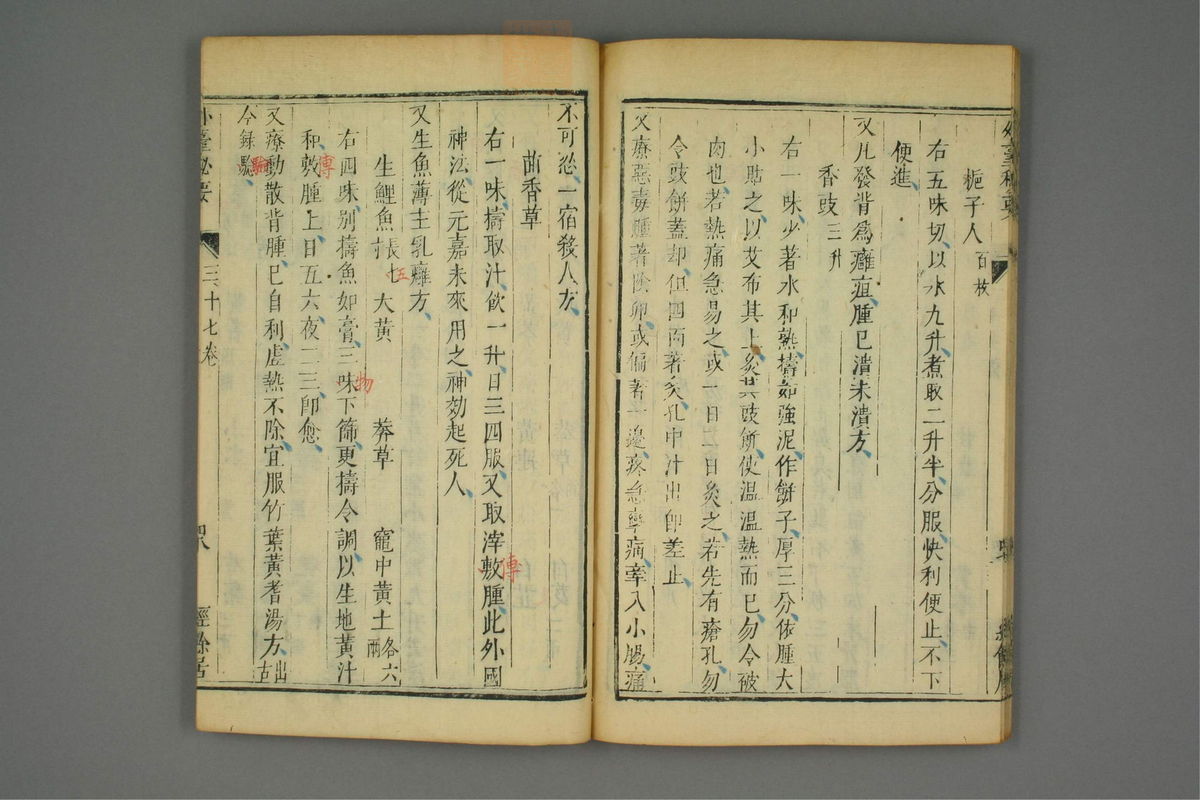 梔子人百枚
右五味切以水九升煮取二升半分服快利便止不下
便進
又凡發背爲癰疽腫已潰未潰方
香豉三升
右一味少著水和熟擣如強泥作餅子厚三分依腫大
小貼之以艾布其上灸其豉餅使温温熱而已勿令破
肉也若熱痛急易之或一日二日灸之若先有瘡孔勿
令豉餅蓋却但四面著灸孔中汁出即差止
又療惡毒腫著陰卵或偏著一邊疼急攣痛牽入小腸痛
不可忍一宿殺人方
茴香草
右一味擣取汁飲一升日三四服又取滓敷腫此外國
傅
神法從元嘉末來用之神効起死人
又生魚薄主乳癰方
生鯉魚長五寸 大黄 莽草 竈中黄土各六兩
右四味别擣魚如膏三味下篩更擣令調以生地黄汁
物
和敷腫上日五六夜二三即愈
傅
又療動散背腫已自利虚熱不除宜服竹葉黄耆湯方出古
今録驗
外臺秘要 三十七卷 經餘居